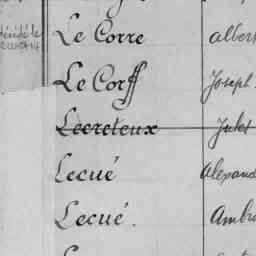 Le Corre Albert
Le Corff Joseph
Lecreteux Jules
Lecué
Lecué.